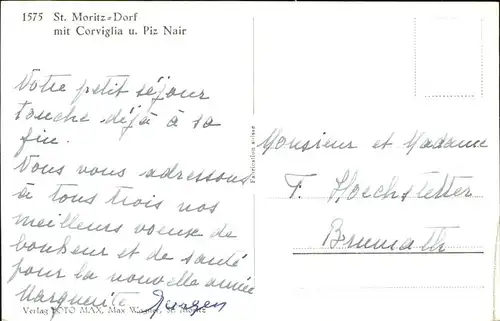 1575 St. Moritz-Dorf
mit Corviglia u. Piz Nair
Votre petit séjour
touche déjà à sa
fin.
Vous vous adressons
à tous trois nos
meilleurs voeux de
bonheur et de santé
pour la nouvelle année
Marguerite
Verlag FOTO MAX, Max Wagner, St. Moritz
Fabrication suisse
Monsieur et Madame
F. Hoechstetter
Brumath